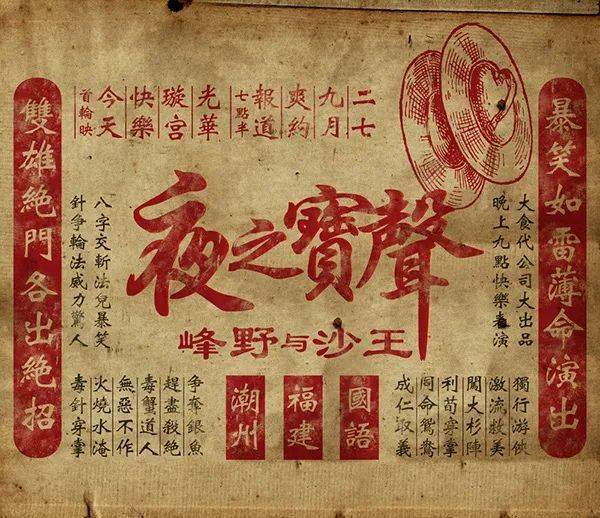 暴笑如雷薄命演出
二七
九月
爽約
報道
七點半
光華
璇宮
快樂
今天
首輪映
雙雄絶門各出絶招
大食代公司大出品
晚上九點快樂表演
聲寶之夜
王沙与野峰
八字交斬法兒暴笑
針爭輪法威力驚人
獨行游俠
激流救美
閙大杉陣
利荀穿掌
同命鴛鴦
成仁取義
國語
福建
潮州
爭奪銀魚
趕盡殺絶
毒蟹道人
無惡不作
火燒水淹
毒針穿掌